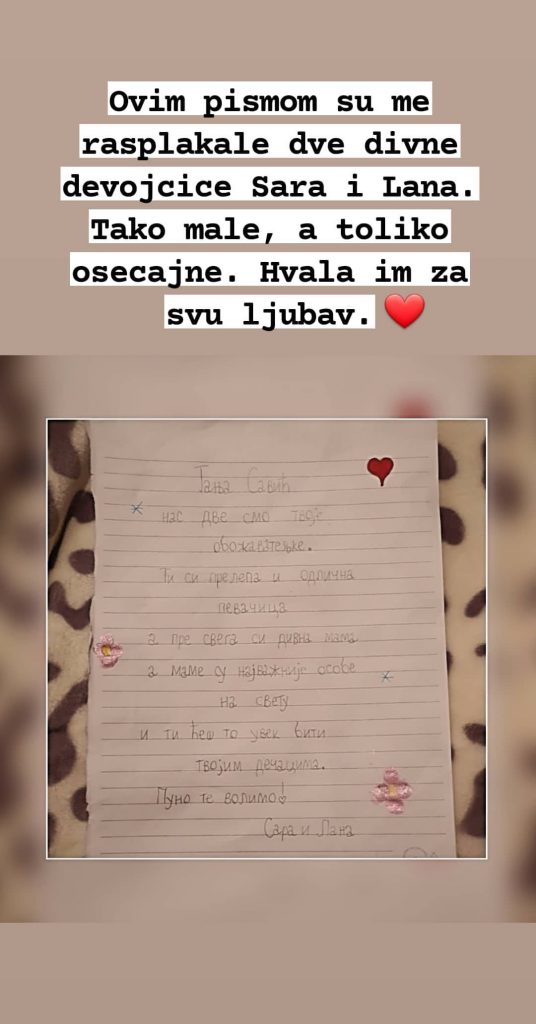 Ovim pismom su me
rasplakale dve divne
devojcice Sara i Lana.
Tako male, a toliko
osecajne. Hvala im za
svu ljubav. ❤️
Тања Савић
нас две смо твоје
обожаватељке.
Ти си прелепа и одлична
певачица
а пре свега си дивна мама
а маме су најважније особе
на свету
и ти ћеш то увек бити
твојим дечацима.
Пуно те волимо!
Сара и Лана